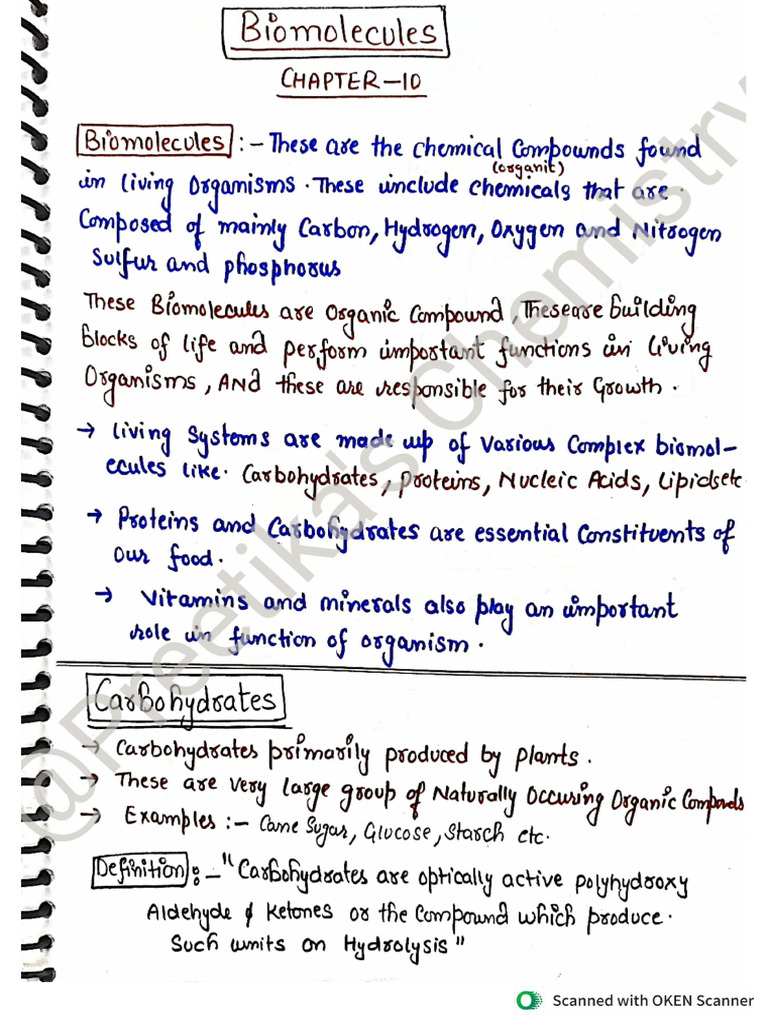 Biomolecules
CHAPTER-10
Biomolecules :- These are the chemical Compounds found
(organic)
in living Organisms. These include chemicals that are.
Composed of mainly Carbon, Hydrogen, Oxygen and Nitrogen
Sulfur and phosphorus
These Biomolecules are Organic Compound, These are building
blocks of life and perform important functions in living
Organisms, AND these are responsible for their Growth.
→ Living Systems are made up of various Complex biomol-
ecules like. Carbohydrates, proteins, Nucleic Acids, Lipids etc
→ Proteins and Carbohydrates are essential Constituents of
Our food.
→ Vitamins and minerals also play an important
role in function of organism.
Carbohydrates
→ Carbohydrates primarily produced by plants.
→ These are very large group of Naturally Occuring Organic Compounds
→ Examples :- Cane Sugar, Glucose, Starch etc.
Definition :- "Carbohydrates are optically active polyhydroxy
Aldehyde & Ketones or the Compound which produce.
Such units on Hydrolysis"
@Preetika's Chemistry
Scanned with OKEN Scanner